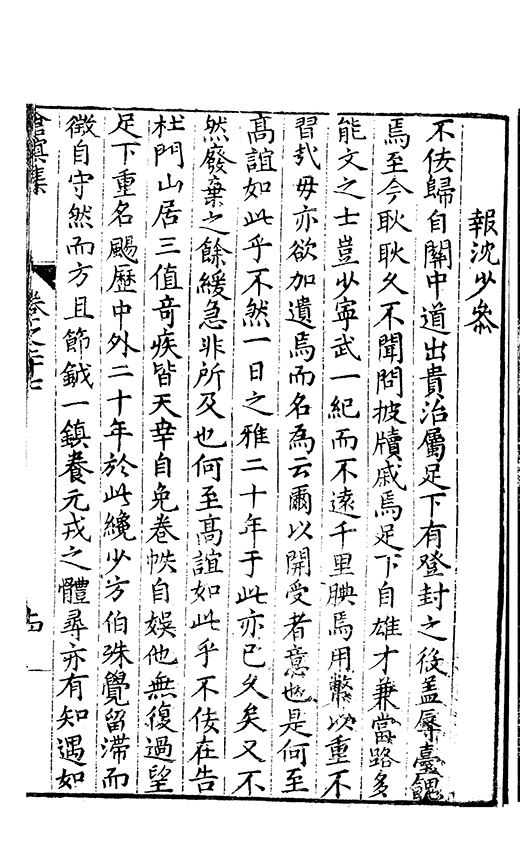 報沈少叅
不佞歸自關中道出貴治屬足下有登封之役盖辱臺餽
焉至今耿耿久不聞問披牘戚焉足下自雄才兼當路多
能文之士豈少寧武一紀而不遠千里腆焉用幣以重不
習㢤毋亦欲加遺焉而名為云爾以開受者意也是何至
高誼如此乎不然一日之雅二十年于此亦已久矣又不
然廢棄之餘緩急非所及也何至高誼如此乎不佞在告
杜門山居三值竒疾皆天幸自免卷帙自娛他無復過望
足下重名颺歷中外二十年於此纔少方伯殊覺留滯而
徵自守然而方且節鉞一鎮養元戎之體尋亦有知遇如
滄溟集
卷之二十七